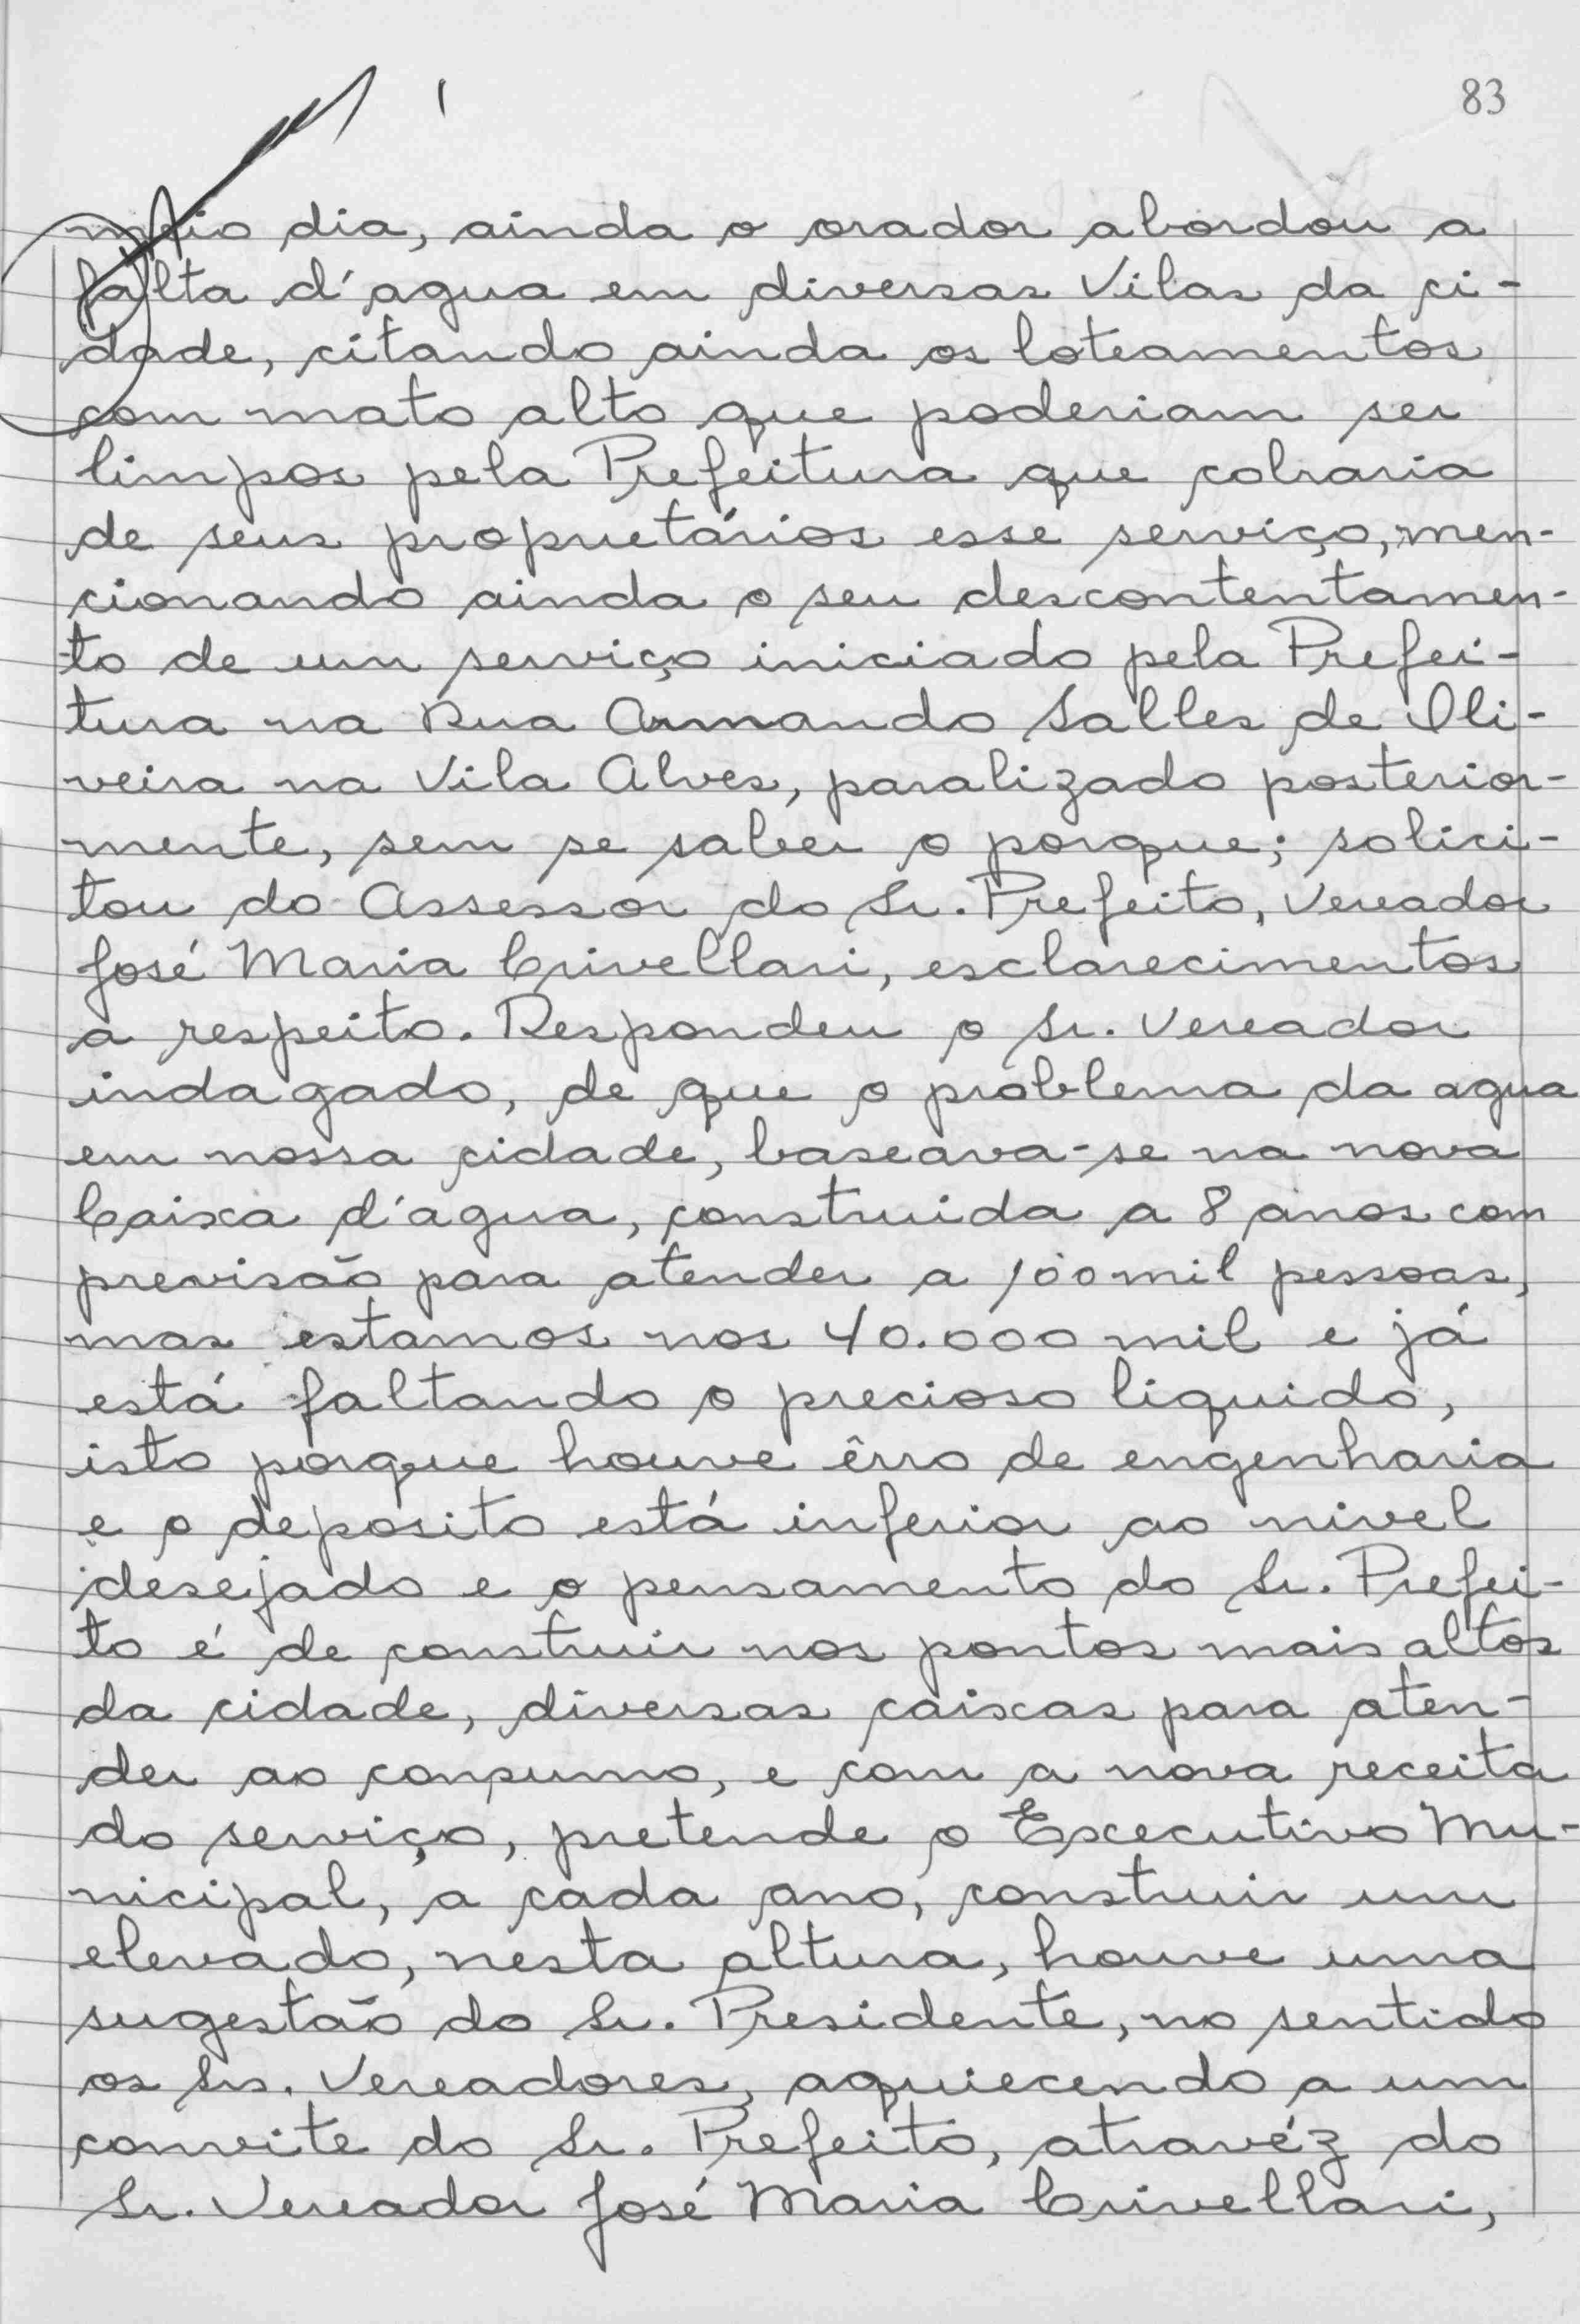 83
meio dia, ainda o orador abordou a
falta d'agua em diversas Vilas da ci-
dade, citando ainda os loteamentos
com mato alto que poderiam ser
limpos pela Prefeitura que cobraria
de seus proprietários esse serviço, men-
cionando ainda o seu descontentamen-
to de um serviço iniciado pela Prefei-
tura na Rua Armando Salles de Oli-
veira na Vila Alves, paralizado posterior-
mente, sem se saber o porque; solici-
tou do Assessor do Sr. Prefeito, Vereador
José Maria Crivellari, esclarecimentos
a respeito. Respondeu o Sr. Vereador
indagado, de que o problema da agua
em nossa cidade, baseava-se na nova
Caixa d'agua, construida a 8 anos com
previsão para atender a 100 mil pessoas,
mas estamos nos 40.000 mil e já
está faltando o precioso liquido,
isto porque houve êrro de engenharia
e o deposito está inferior ao nivel
desejado e o pensamento do Sr. Prefei-
to é de construir nos pontos mais altos
da cidade, diversas caixas para aten-
der ao consumo, e com a nova receita
do serviço, pretende o Executivo Mu-
nicipal, a cada ano, construir um
elevado, nesta altura, houve uma
sugestão do Sr. Presidente, no sentido
os Srs. Vereadores, aquiecendo a um
convite do Sr. Prefeito, atravéz do
Sr. Vereador José Maria Crivellari,